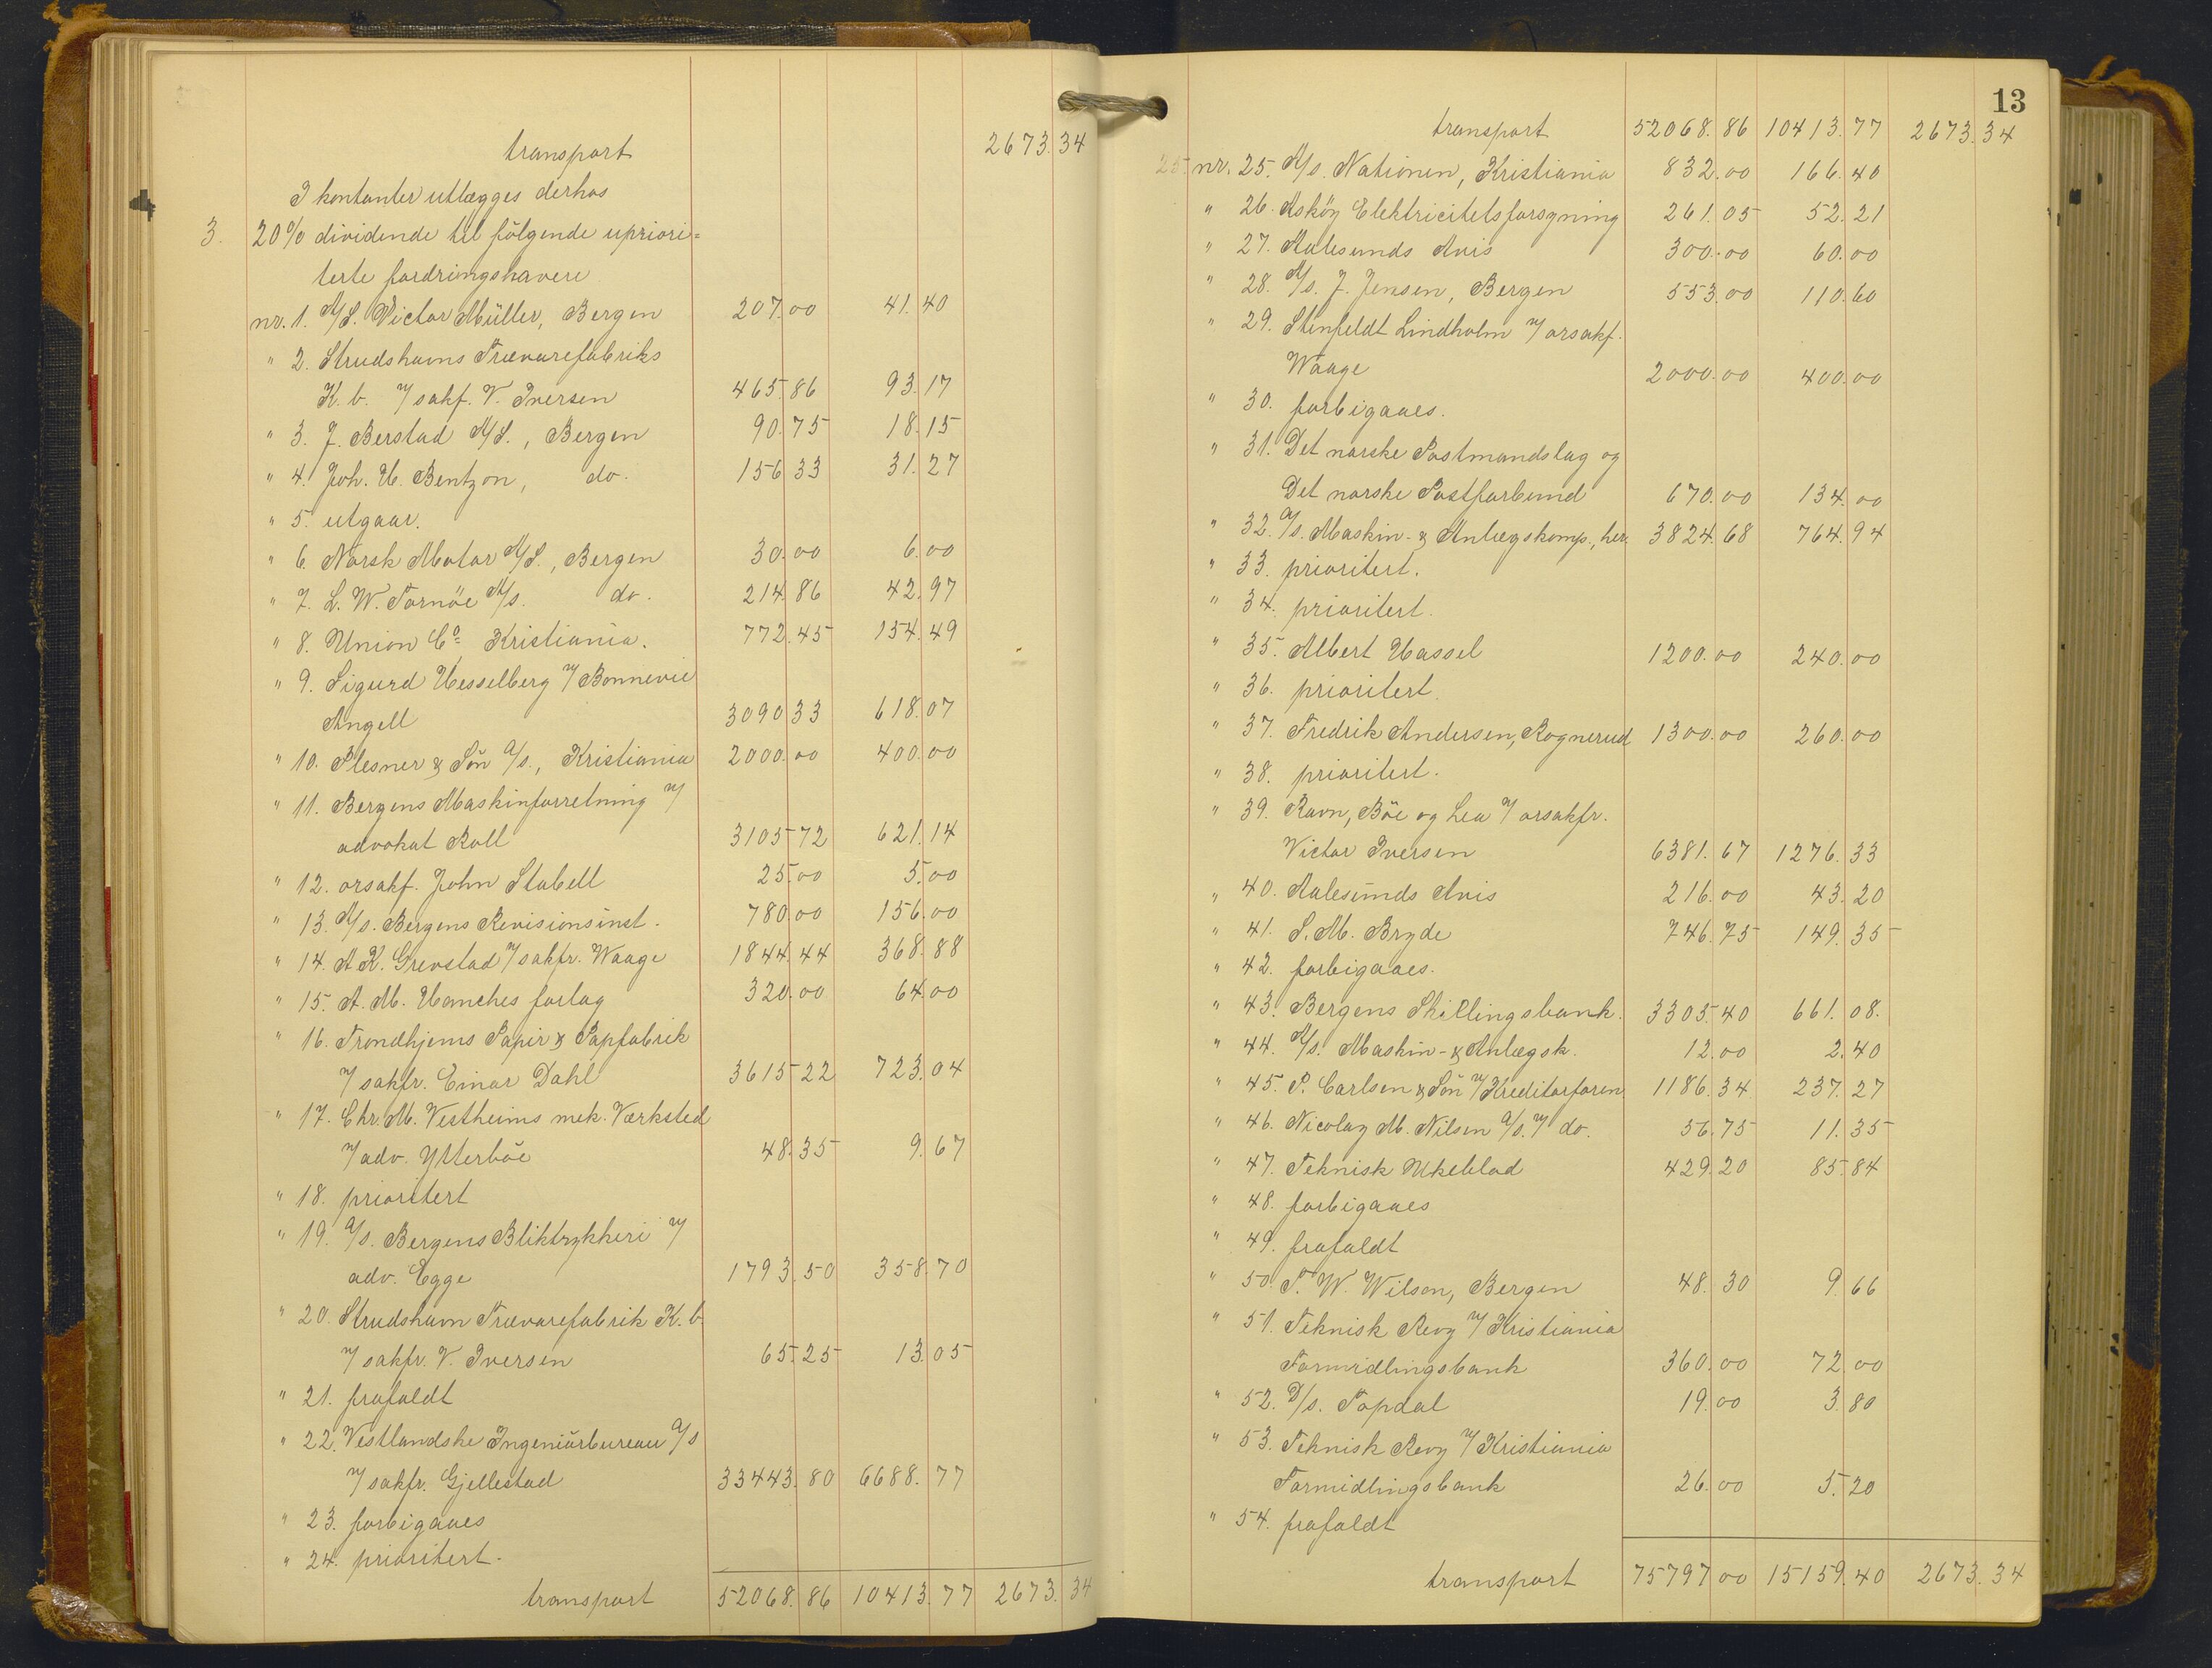 transport 2673.34
I kontanter utlægges derhos
3. 20% dividende til følgende upriori=
terte fordringshavere
nr. 1. A/S. Victor Müller, Bergen 207.00 41.40
" 2. Strudshavns Trævarefabriks
K. b. v/ sakf. V. Iversen 465.86 93.17
" 3. J. Berstad A/S., Bergen 90.75 18.15
" 4. Joh. H. Bentzon, do. 156.33 31.27
" 5. utgaar.
" 6. Norsk Motor A/S., Bergen 30.00 6.00
" 7. L. W. Tornöe A/s. do. 214.86 42.97
" 8. Union Co Kristiania. 772.45 154.49
" 9. Sigurd Hesselberg v/ Bonnevie
Angell 3090.33 618.07
" 10. Plesner & Sön A/s., Kristiania 2000.00 400.00
" 11. Bergens Maskinforretning v/
advokat Roll 3105.72 621.14
" 12. orsakf. John Stabell 25.00 5.00
" 13. A/s. Bergens Revisionsinst. 780.00 156.00
" 14. A K. Grevstad v/ sakfr. Waage 1844.44 368.88
" 15. A. M. Hanches forlag 320.00 64.00
" 16. Trondhjems Papir & Papfabrik
v/ sakfr. Einar Dahl 3615.22 723.04
" 17. Chr. M. Vestheims mek. Værksted
v/ adv. Ytterböe 48.35 9.67
" 18. prioritert
" 19. A/s. Bergens Bliktrykkeri v/
adv. Egge 1793.50 358.70
" 20. Strudshavn Trævarefabrik K. b.
v/ sakfr. V. Iversen 65.25 13.05
" 21. frafaldt
" 22. Vestlandske Ingeniörbureau A/s
v/ sakfr. Gjellestad 33443.80 6688.77
" 23. forbigaaes
" 24. prioritert.
transport 52068.86 10413.77 2673.34
13
transport 52068.86 10413.77 2673.34
25. nr. 25. A/s. Nationen, Kristiania 832.00 166.40
" 26. Asköy Elektricitetsforsyning 261.05 52.21
" 27. Aalesunds Avis 300.00 60.00
" 28. A/s. J. Jensen, Bergen 553.00 110.60
" 29. Stenfeldt Lindholm v/ orsakf.
Waage 2000.00 400.00
" 30. forbigaaes.
" 31. Det norske Postmandslag og
Det norske Postforbund 670.00 134.00
" 32. A/s. Maskin- & Anlægskomp., her. 3824.68 764.94
" 33. prioritert.
" 34. prioritert.
" 35. Albert Hassel 1200.00 240.00
" 36. prioritert
" 37. Fredrik Andersen, Rognerud 1300.00 260.00
" 38. prioritert.
" 39. Ravn, Böe og Lea v/ orsakfr.
Victor Iversen 6381.67 1276.33
" 40. Aalesunds Avis 216.00 43.20
" 41. S. M. Bryde 746.75 149.35
" 42. forbigaaes.
" 43. Bergens Skillingsbank. 3305.40 661.08.
" 44. A/s. Maskin- & Anlægsk. 12.00 2.40
" 45. P. Carlsen & Sön v/ Kreditorforen 1186.34 237.27
" 46. Nicolay M. Nilsen A/s. v/ do. 56.75 11.35
" 47. Teknisk Ukeblad 429.20 85.84
" 48. forbigaaes
" 49. frafaldt
" 50. T. W. Wilson, Bergen 48.30 9.66
" 51. Teknisk Revy v/ Kristiania
Formidlingsbank 360.00 72.00
" 52. D/s. Topdal 19.00 3.80
" 53. Teknisk Revy v/ Kristiania
Formidlingsbank 26.00 5.20
" 54. frafaldt
transport 75797.00 15159.40 2673.34